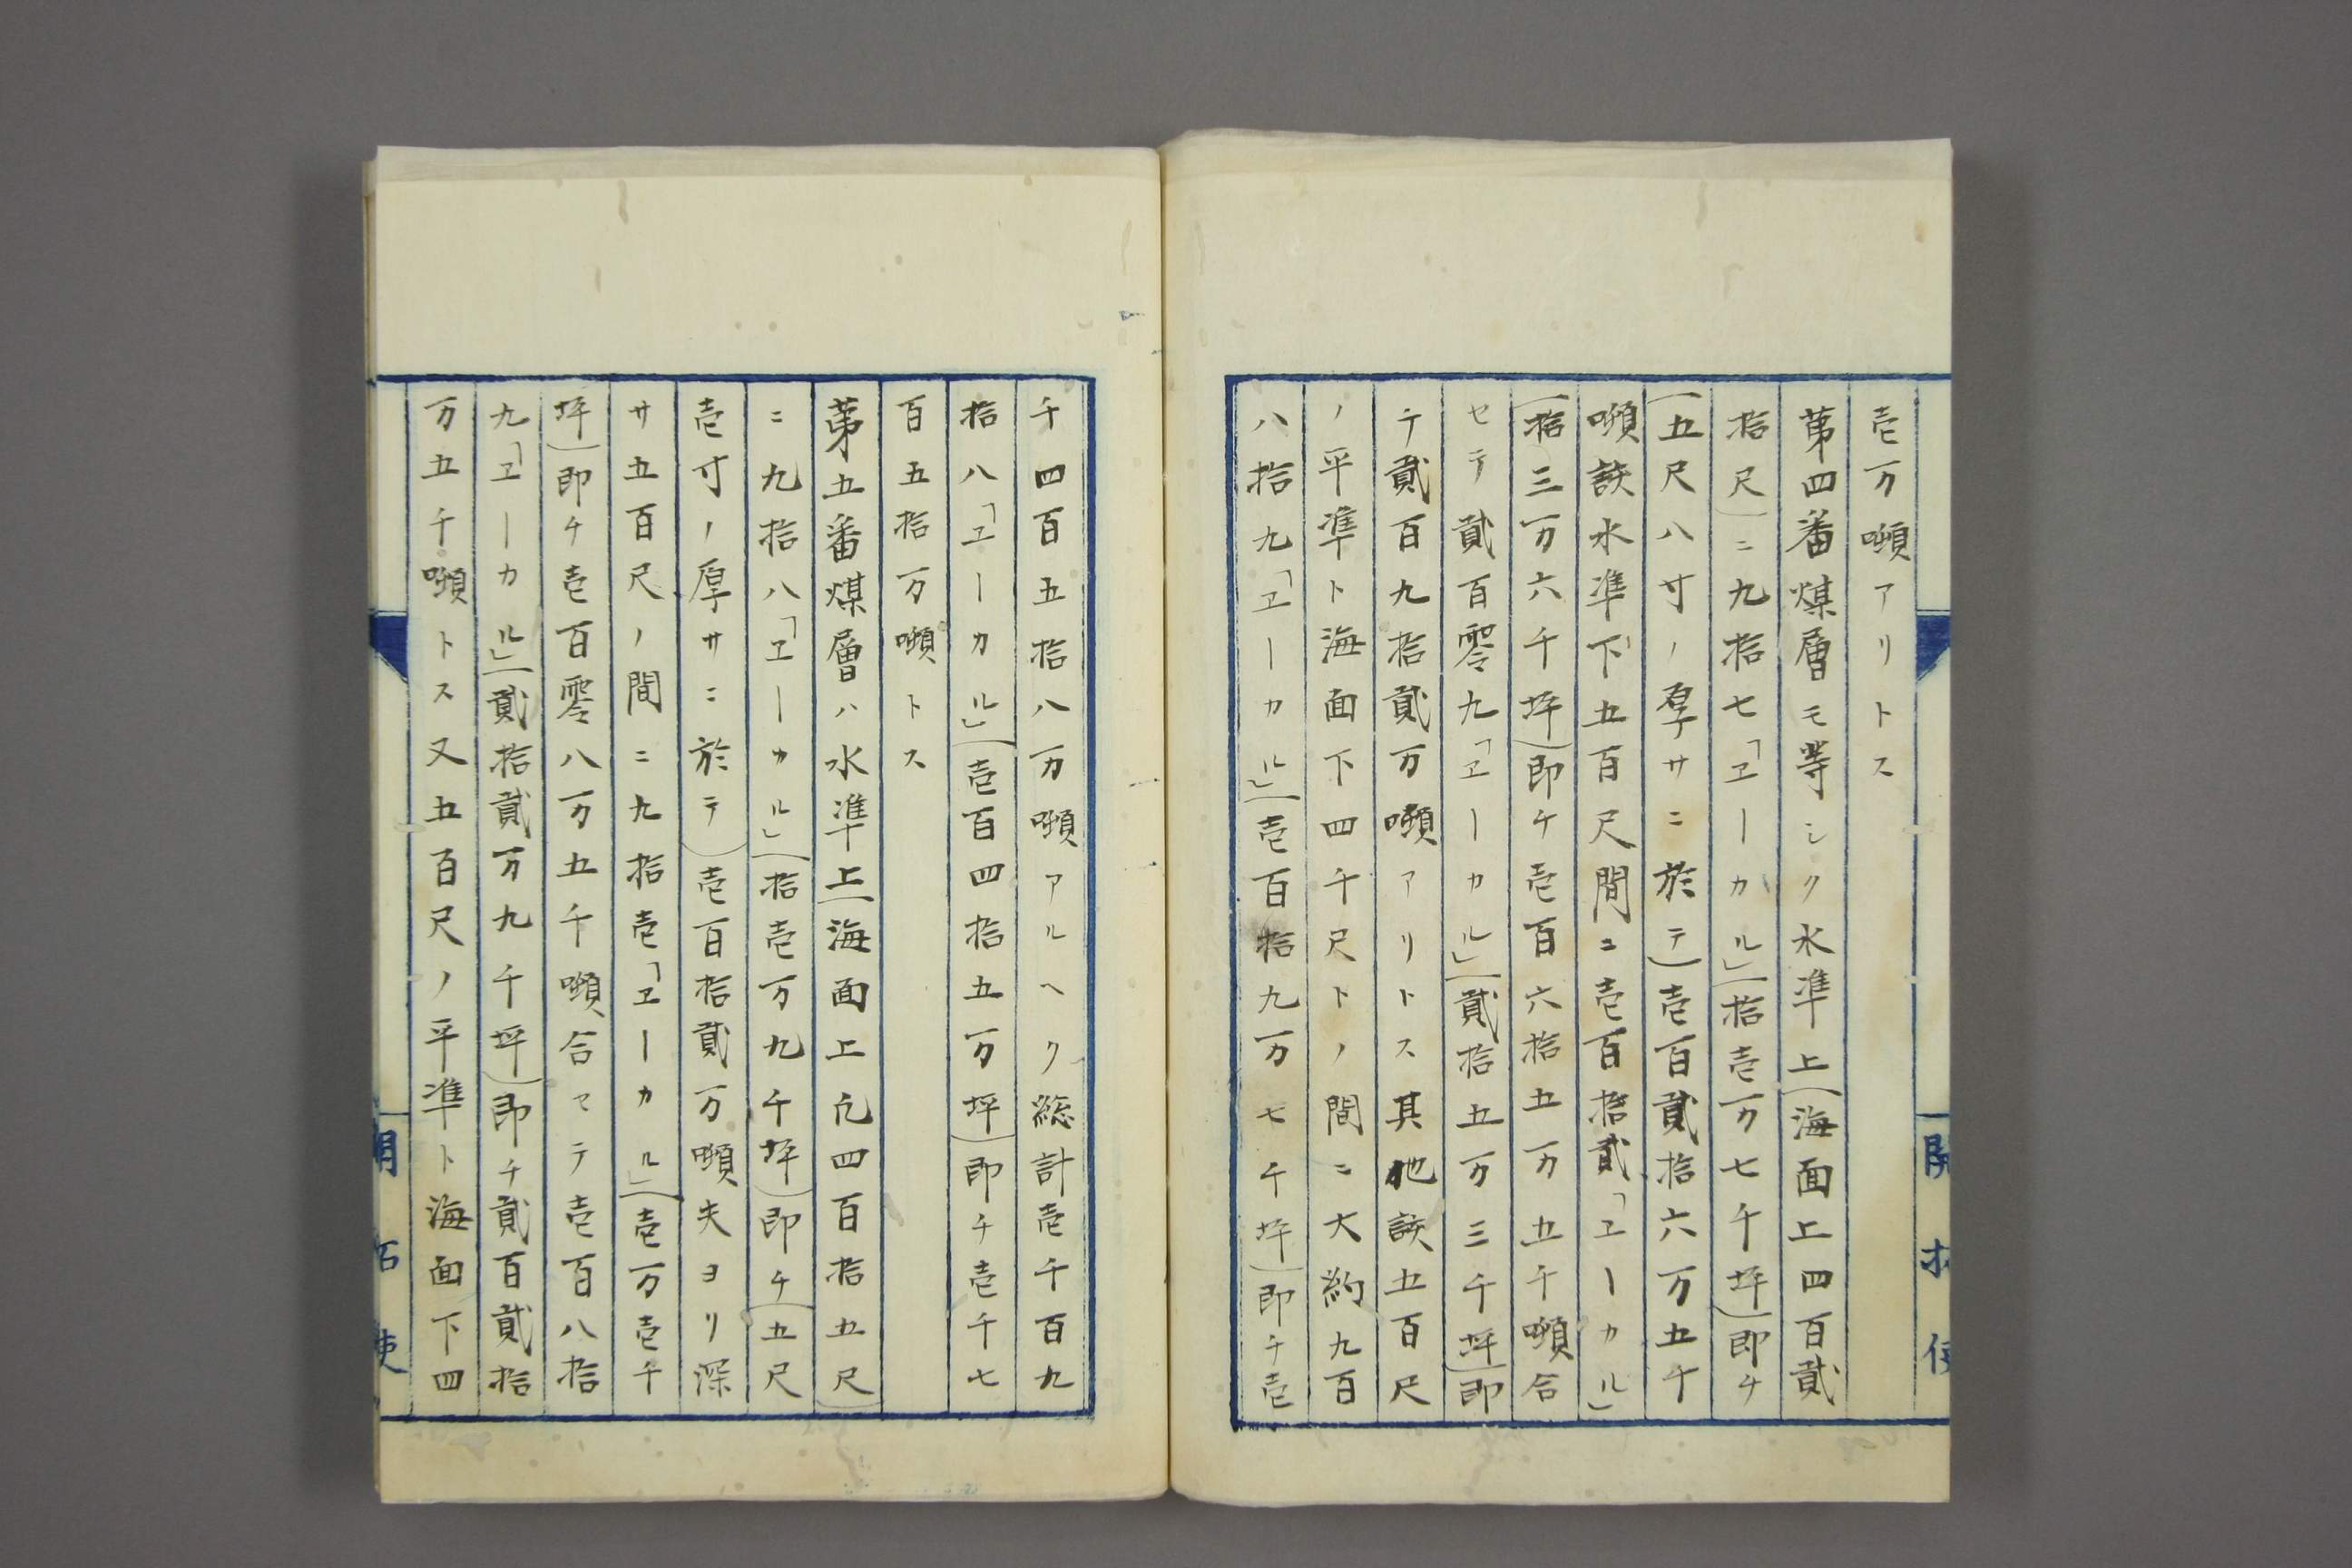 壱万噸アリトス
第四番煤層モ等シク水準上(海面上四百貳
拾尺)ニ九拾七「ヱーカル」(拾壱万七千坪)即チ
(五尺八寸ノ厚サニ於テ)壱百貳拾六万五千
噸該水準下五百尺間ニ壱百拾貳「ヱーカル」
(拾三万六千坪)即チ壱百六拾五万五千噸合
セテ貳百零九「ヱーカル」(貳拾五万三千坪)即
チ貳百九拾貳万噸アリトス其他該五百尺
ノ平準ト海面下四千尺トノ間ニ大約九百
八拾九「ヱーカル」(壱百拾九万七千坪)即チ壱
開拓使
千四百五拾八万噸アルヘク総計壱千百九
拾八「ヱーカル」(壱百四拾五万坪)即チ壱千七
百五拾万噸トス
第五番煤層ハ水準上(海面上凢四百拾五尺)
ニ九拾八「ヱーカル」(拾壱万九千坪)即チ(五尺
壱寸ノ厚サニ於テ)壱百拾貳万噸夫ヨリ深
サ五百尺ノ間ニ九拾壱「ヱーカル」(壱万壱千
坪)即チ壱百零八万五千噸合セテ壱百八拾
九「ヱーカル」(貳拾貳万九千坪)即チ貳百貳拾
万五千噸トス又五百尺ノ平準ト海面下四
開拓使